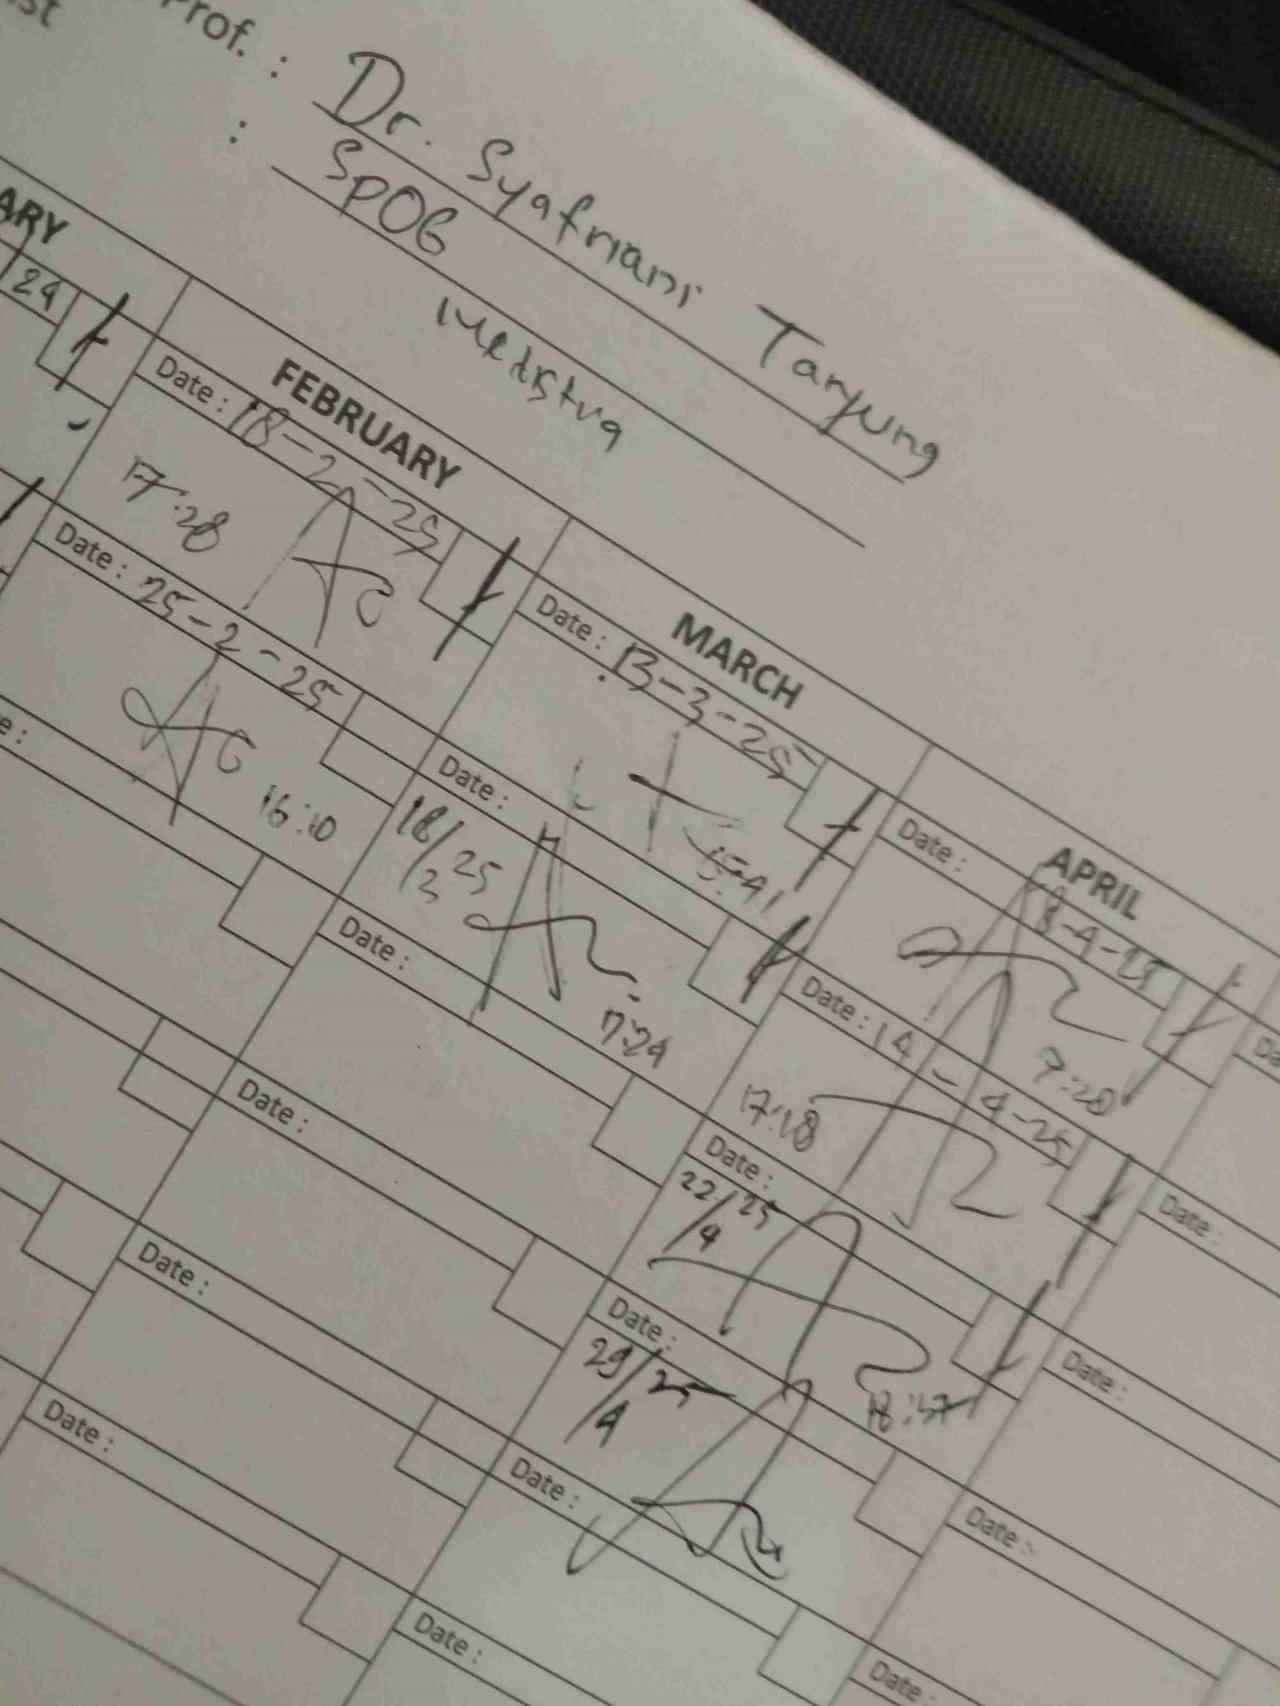 Prof. : Dr. Syafriani Tanjung
st : SPOG
Medistra
ARY
FEBRUARY
MARCH
APRIL
24
Date : 18-2-25
17:28
Date : 25-2-25
16:10
Date : 13-3-25
Date :
18/25
3
17:29
Date :
Date :
Date :
Date :
Date : 8-4-25
7:20
Date : 14-4-25
17:18
Date :
22/25
4
18:47
Date :
29/25
4
Date :
Date :
Date :
Date :
Date :
Date :